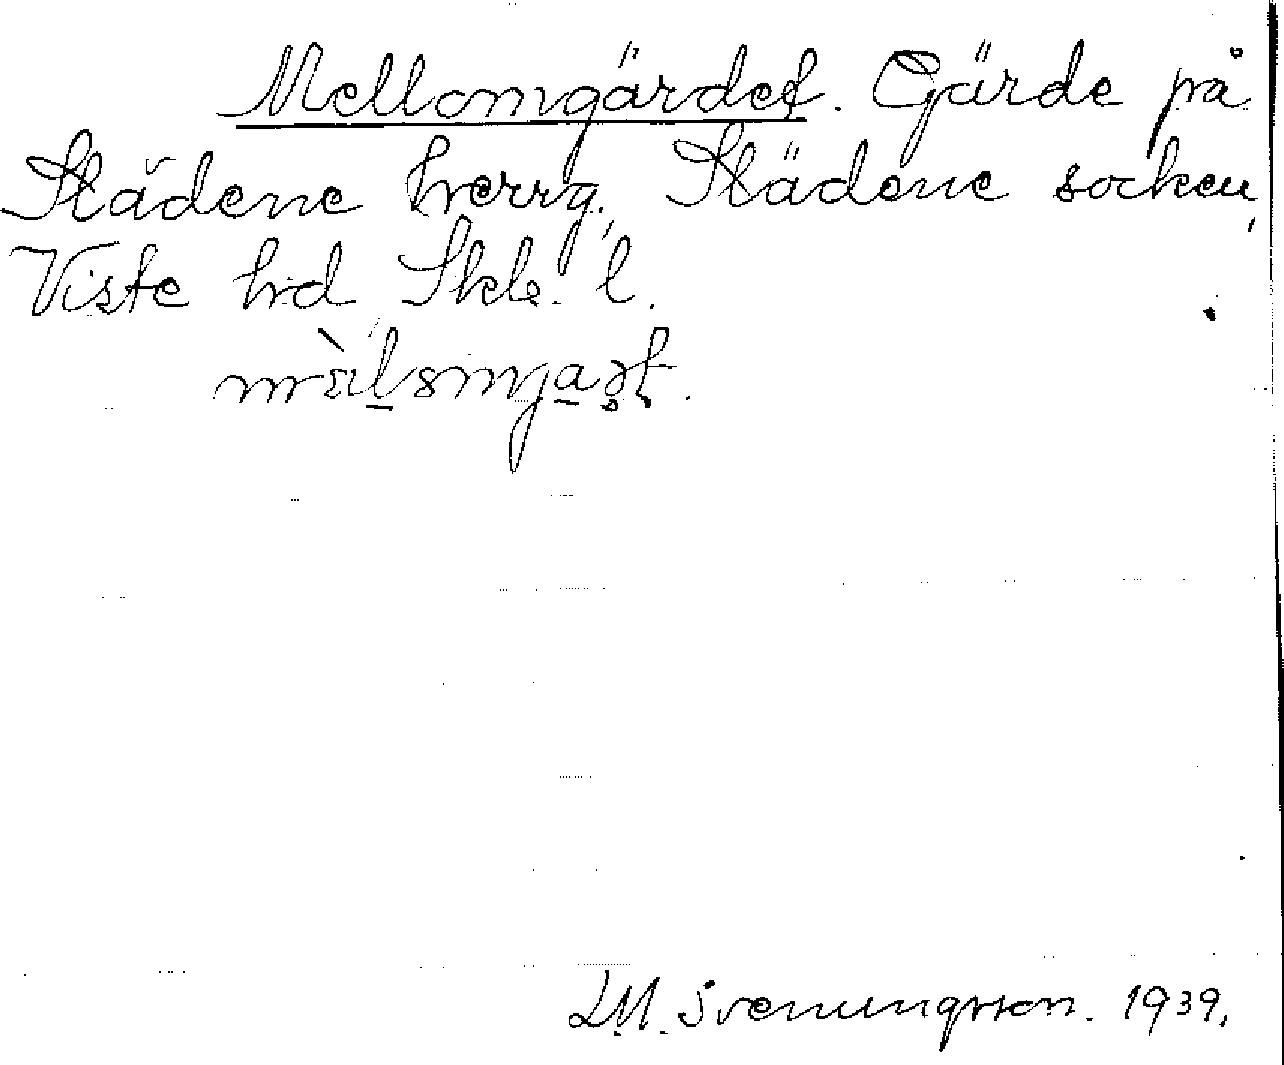 Mellomgärdet. Gärde på
Slädene herrg., Slädene socken,
Viste hd Skb. l.
L.M. Svenungsson. 1939.